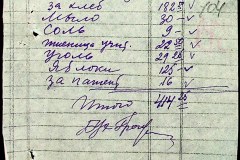 за хлеб 182 50
мыло 30 –
соль 9 –
пшеница 22 50
уголь 29 25
яблоки 125
за патент 16
Итого 414 25
104